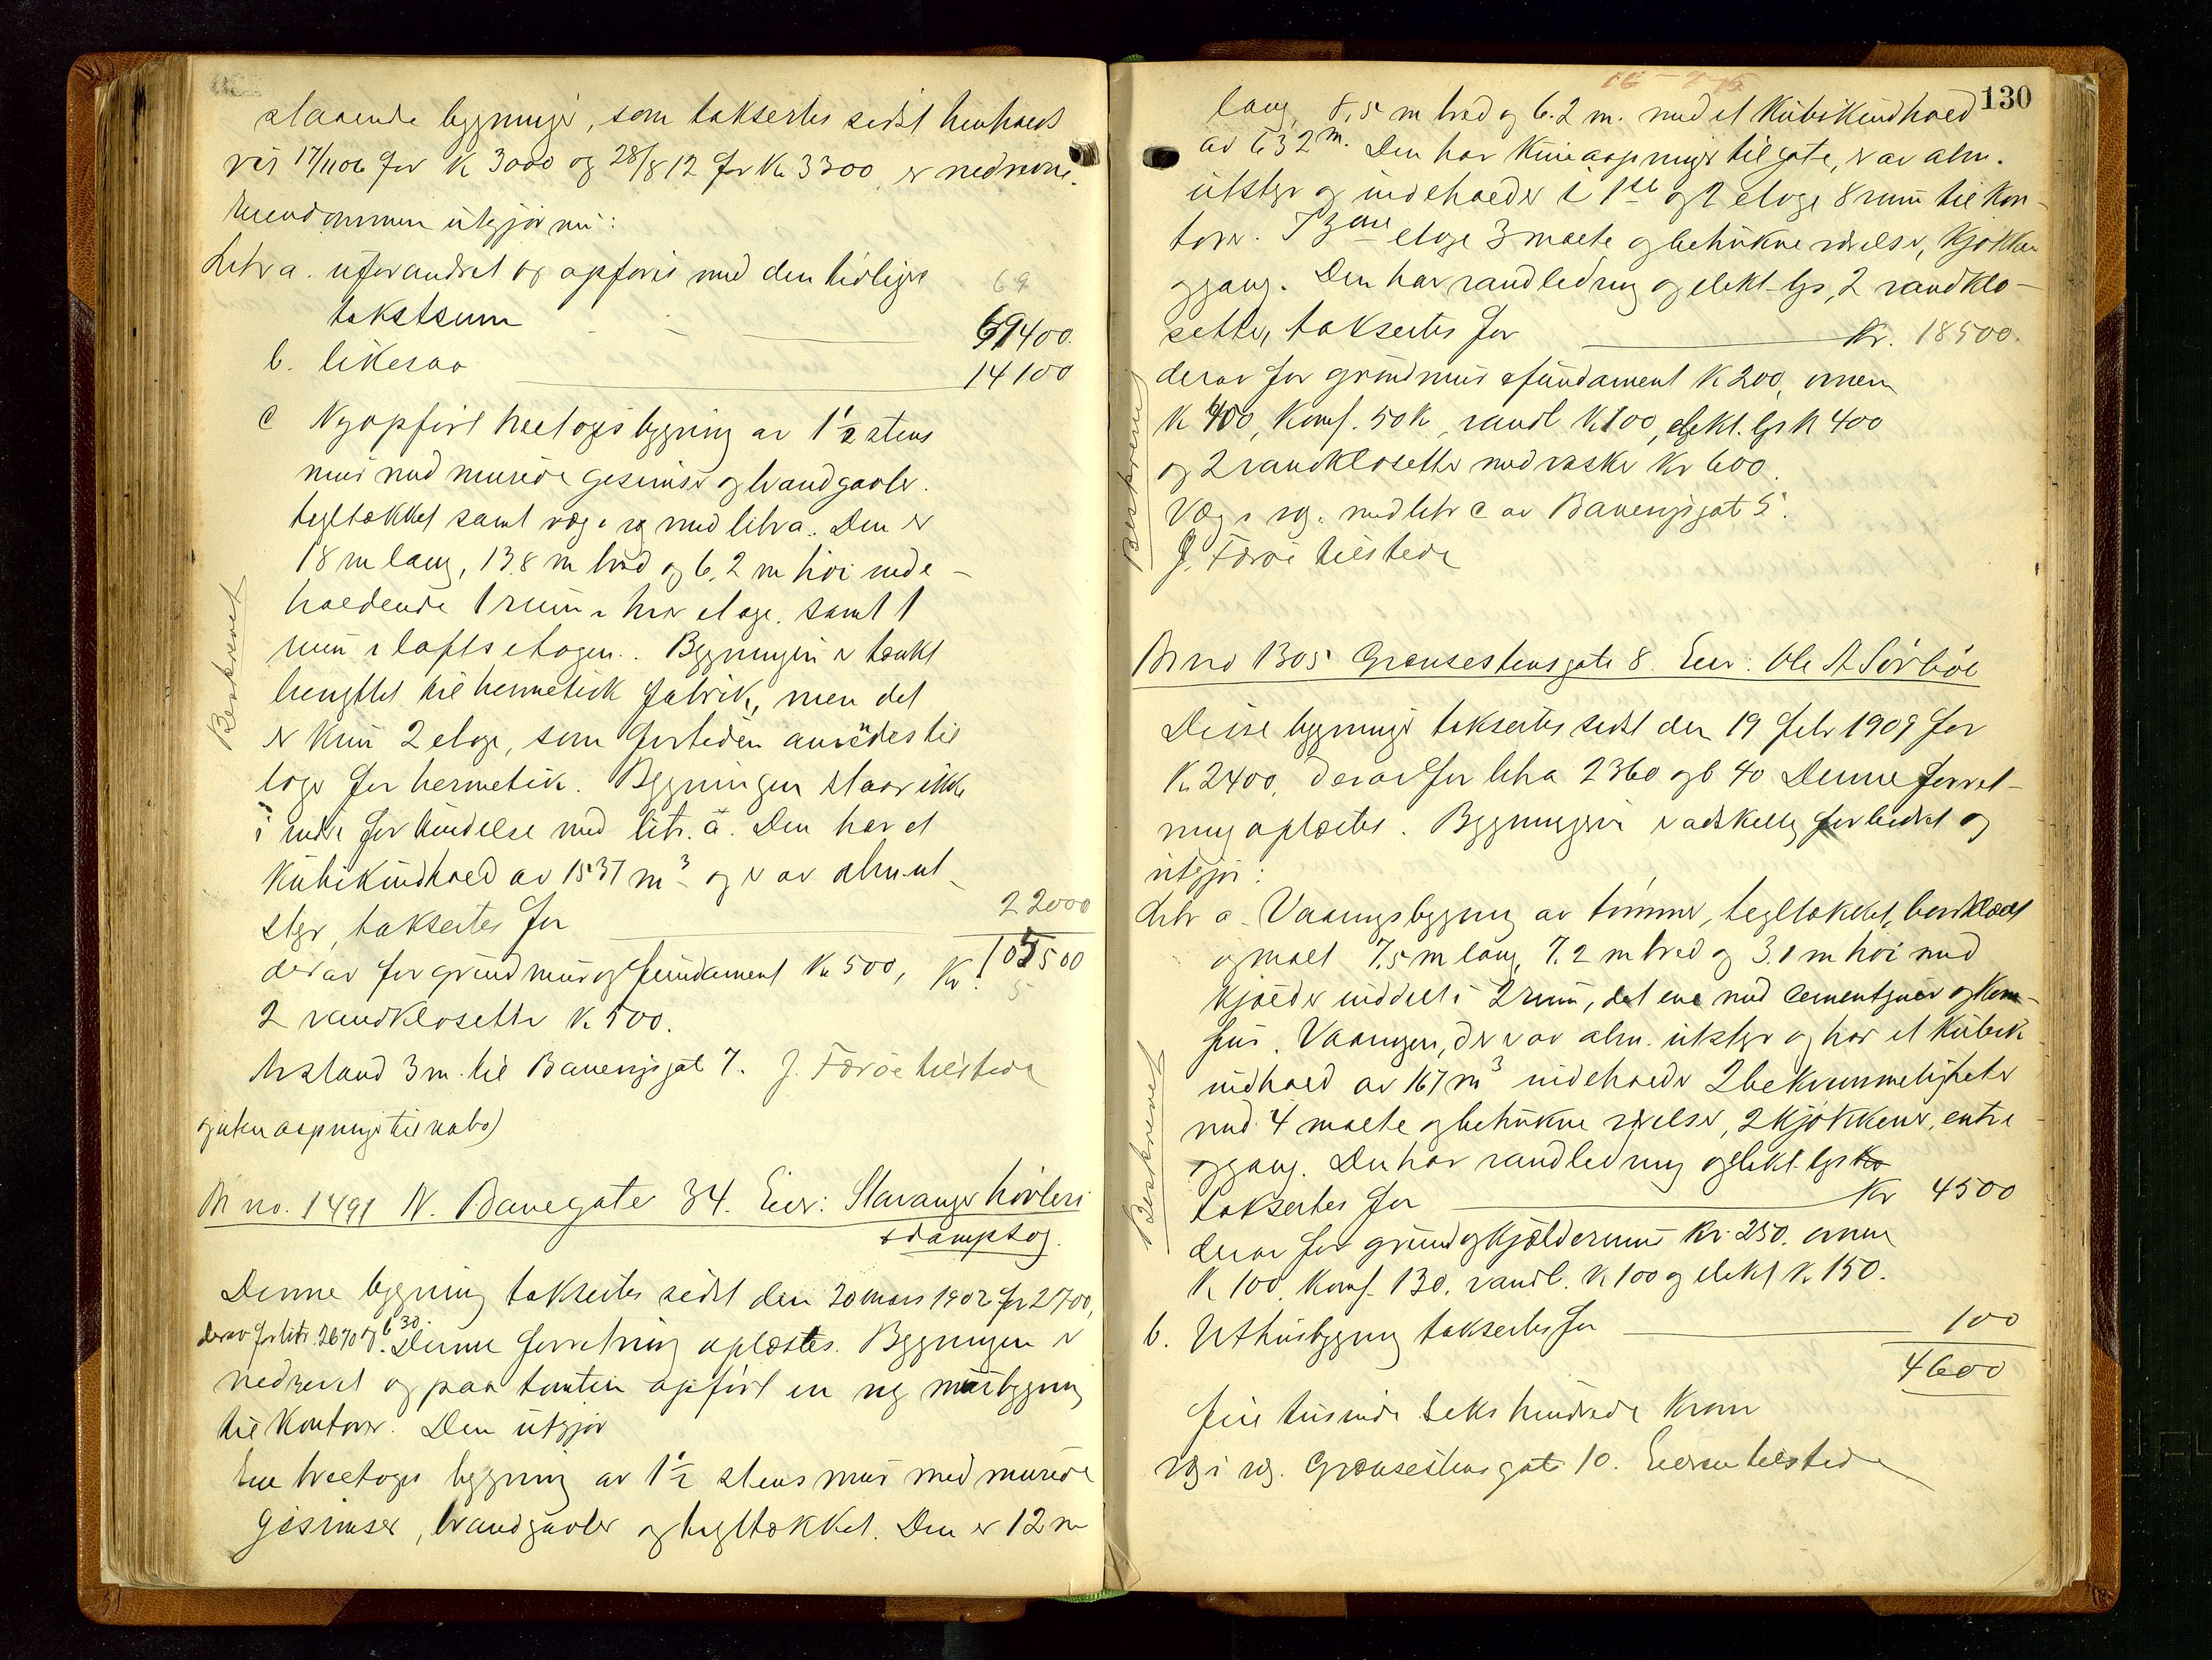 staaende bygninger, som taksertes sidst henholds
vis 17/1106 for K 3000 og 28/8 12 for Kr 3300, er nedrevne.
Eiendommen utgjør nu:
Litr a. uforandret og opføres med den tidligere
69
takstsum 69400.
b. likesaa 14100
c Nyopført treetages bygning av 1½ stens
mur med murede gesimser og brandgavler.
tegltækket samt væg i væg med litr a. Den er
18 m lang, 13.8 m bred og 6.2 m høi inde-
holdende 1 rum i hver etage. samt 1
rum i loftsetagen. Bygningen er tænkt
benyttet til hermetisk fabrik, men det
er kun 2 etage, som fortiden anvendes til
lager for hermetik. Bygningen staar ikke
i indre forbindelse med litr. a. Den har et
Kubikindhold av 1537 m³ og er av alm. ut-
styr, takseres for 22000
derav for grundmur og fundament Kr 500, Kr. 105500
5
2 vandklosetter K. 500.
Avstand 3 m. til Banevigsgat 7. J. Færøe tilstede
og uten aapninger til nabo)
Beskrevet
M no. 1491 N. Banegate 34. Eier: Stavanger høvleri
& dampsag.
Denne bygning takseres sidst den 20 mars 1902 for 2700,
derav for litr. 2670 og b 30.
Denne forretning oplæstes. Bygningen er
nedrevet og paa tomten opført en ny murbygning
til Kontorer. Den utgjør
En treetages bygning av 1½ stens mur med murede
gesimser, brandgavler og tegltækket. Den er 12 m
130
lang, 8,5 m bred og 6.2 m. med et Kubikindhold
av 632 m. Den har Kun aapninger til gate, er av alm.
utstyr og indeholder i 1ste og 2 etage 8 rum til Kon-
torer. I 3die etage 3 malte og betrukne værelser, Kjøkken
og gang. Den har vandledning og elekt. lys, 2 vandklo-
setter, takseres for Kr. 18500.
derav for grundmur & fundament K 200, ovnen
K 400, Komf. 50 K, vandl K 100, elekt. lys K 400
og 2 vandklosetter med vaske Kr 600.
Væg i væg. med litr c av Banevigsgat 5.
J. Færøe tilstede
Beskrevet
M no 1305 Grænsestensgate 8. Eier: Ole A Sørbøe
Disse bygninger takseres sidst den 19 febr 1909 for
K. 2400, derav for litr a 2360 og b 40 Denne forret-
ning oplæstes. Bygningene er adskillig forbedret og
utgjør:
Litr a. Vaaningsbygning av tømmer, tegltækket, bordklædt
og malt 7.5 m lang, 7.2 m bred og 3.1 m høi med
Kjælder inddelt i 2 rum, det ene med cementgulv og Kom-
fur. Vaaningen, der er av alm. utstyr og har et Kubik
indhold av 167 m³ indeholder 2 bekvemmeligheter
med 4 malte og betrukne værelser, 2 Kjøkkener, entre
og gang. Den har vandledning og elekt. lys
takseres for Kr 4500
derav for grund og Kjældermur Kr. 250. ovnen
K 100, Komf. 130, vandl. K 100 og elekt K. 150.
b. Uthusbygning takseres for 100
4600
fire tusinde seks hundrede Kroner
væg i væg. Grænsestensgate 10. Eieren tilstede
Beskrevet